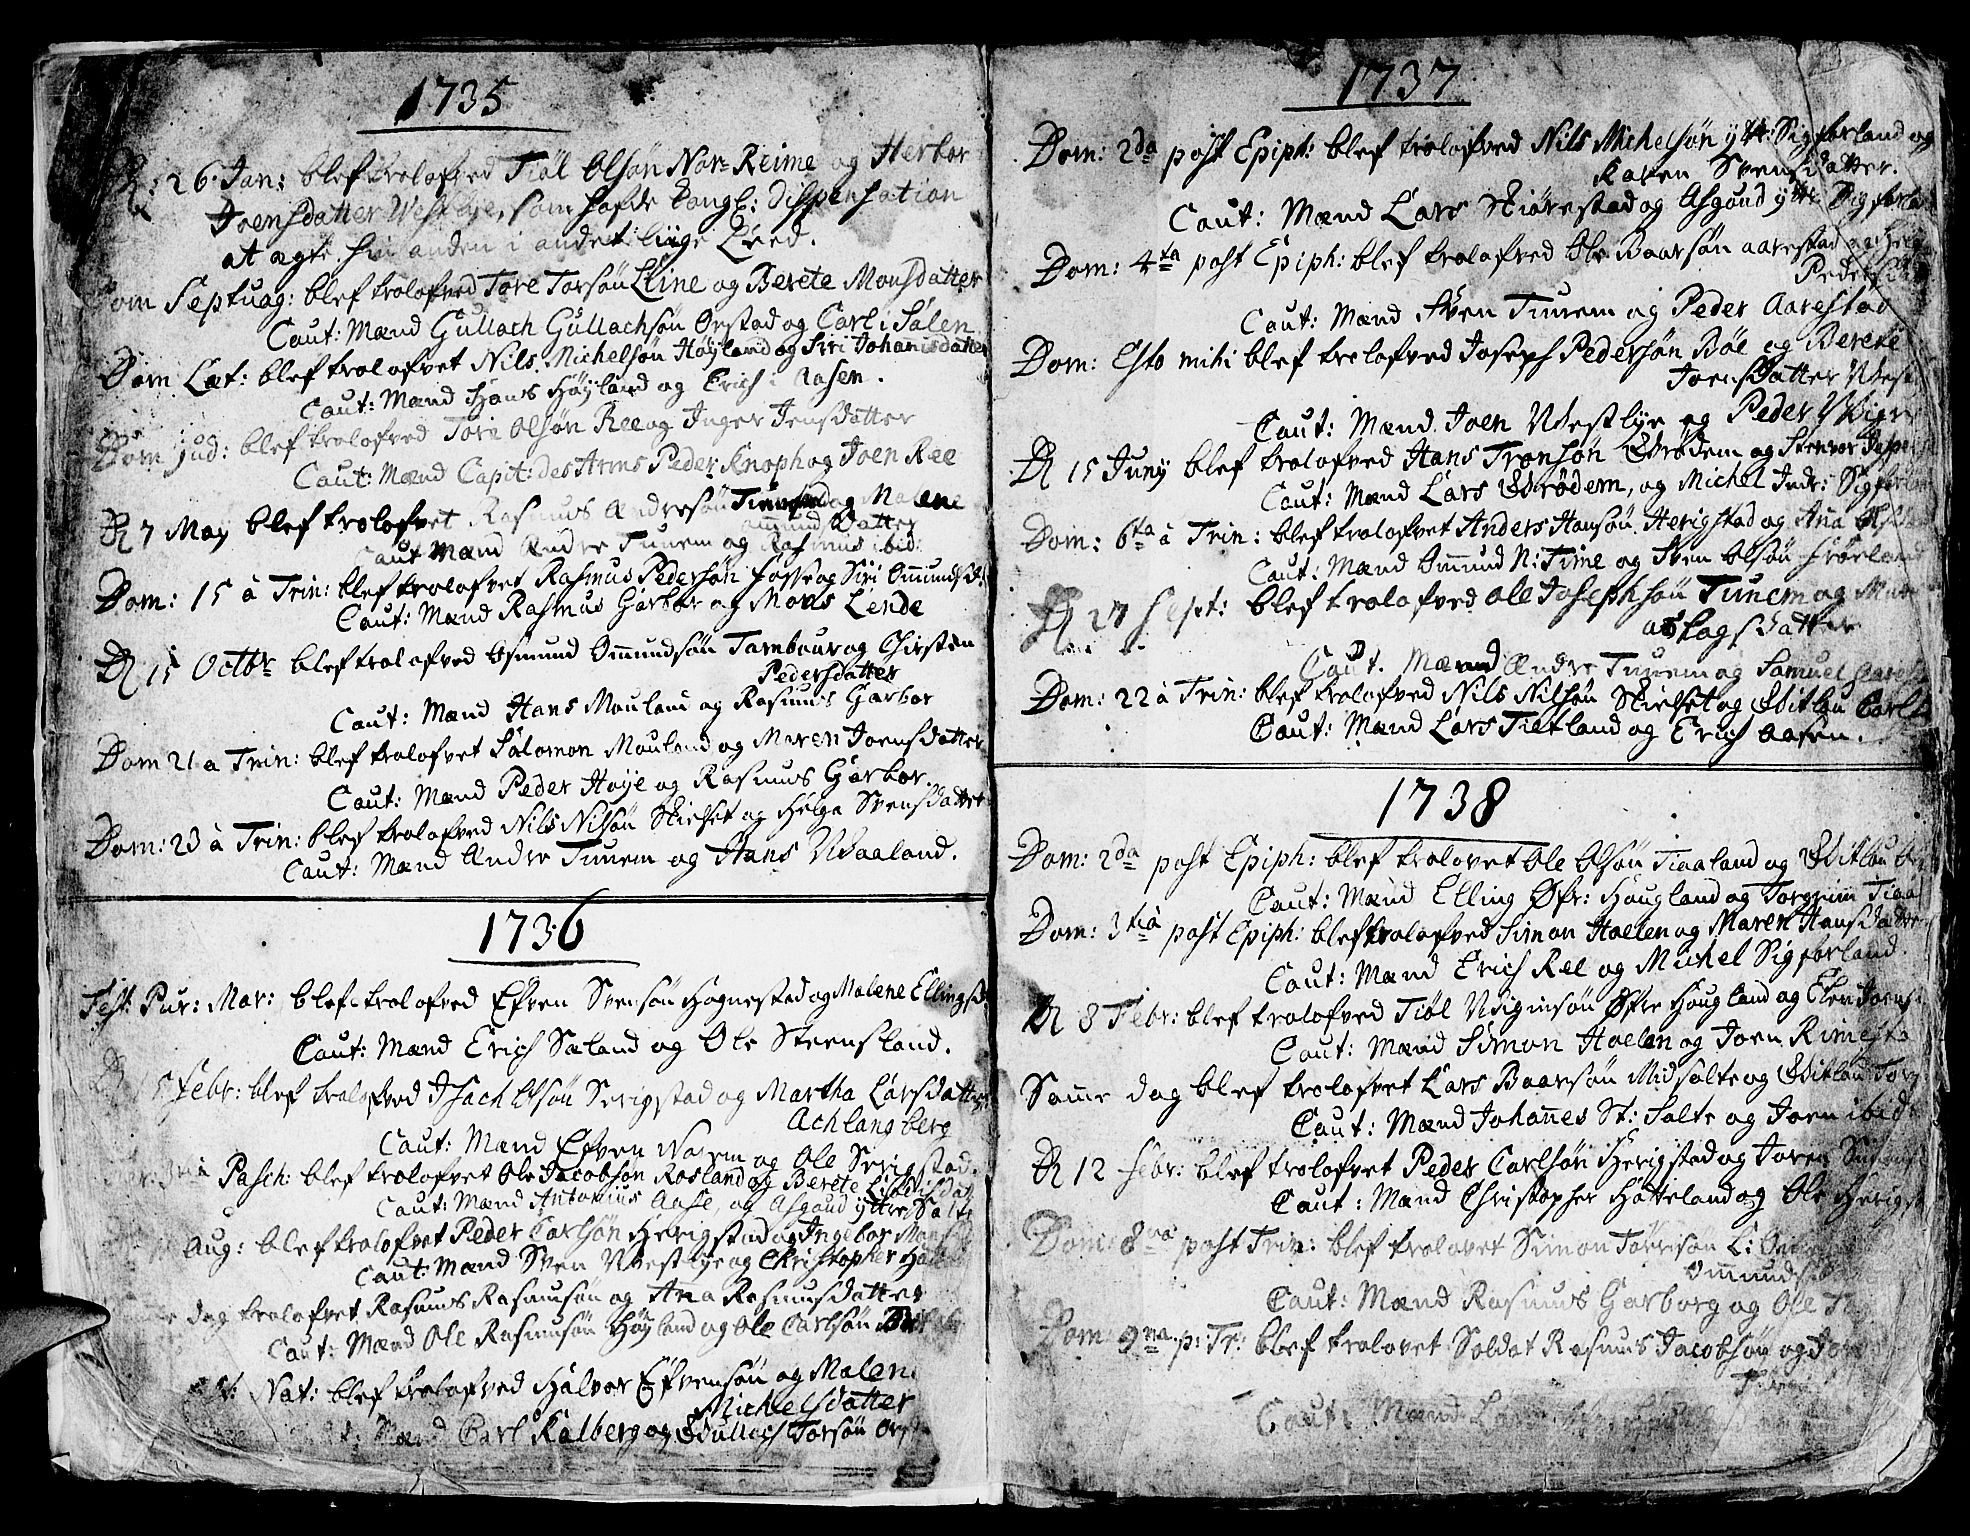 1735
D: 26 Jan: blef trolofved Tiøl Olsøn Nor-Reime og Herbor
Joensdatter Westlye, som hafde Kongl: Dispensation
at ægte hin anden i andet liige Leed.
Dom Septuag: blef trolofved Tore Torsøn Line og Berete Monsdatter
Caut: Mænd Gullach Gullachsøn Orstad og Carl i Salen
Dom Læt: blef trolofvet Nils Michelsøn Høyland og Siri Johanisdatter
Caut: Mænd Hans Høyland og Erich i Aasen.
Dom Jud: blef trolofved Tore Olsøn Ree og Inger Jensdatter
Caut: Mænd Capit: des Arms Peder Knoph og Joen Ree
D 7 May blef trolofvet Rasmus Andresøn og Malene
Omund Datter
Caut Mænd Andre Tunem og Rasmus ibid:
Dom: 15 à Trin: blef trolofvet Rasmus Pedersøn Fosse og Siri Omundsd:
Caut: Mænd Rasmus Garbor og Mons Lende
D 15 Octbr blef trolofved Osmund Omundsøn Tambour og Chirsten
Pedersdatter
Caut: Mænd Hans Mouland og Rasmus Garbor
Dom 21 a Trin: blef trolofvet Salomon Mouland og Maren Joensdatter
Caut: Mænd Peder Høye og Rasmus Garbor.
Dom: 23 à Trin: blef trolofved Nils Nilsøn Skielset og Helga Svensdatter
Caut: Mænd Andre Tunem og Hans Waaland.
1736
Fest: Pur: Mar: blef trolofved Efven Svensøn Hognestad og Malene Ellingsd
Caut: Mænd Erich Sæland og Ole Steensland.
D 5 Febr: blef trolofved Isach Olsøn Serigstad og Martha Larsdatter
Achlangberg
Caut: Mænd Efven Norem og Ole Serigstad.
Pasch: blef trolofvet Ole Jacobsøn Rosland og Berete
Caut: Mænd Antonius Aase, og Asgoud yttre Salte
Aug: blef trolofvet Peder Carlsøn Herigstad og Ingebor
Caut: Mænd Sven Westlye og Christopher
dag trolofvet Rasmus Rasmusøn og Ana Rasmusdatter
Caut: Mænd Ole Rasmusøn Høyland og Ole Carlsøn
Nat: blef trolofved Halvor Efvensøn og Malen
Michelsdatter
Mænd Carl Kalberg og Gullach Torsøn
1737
Dom: 2da post Epiph: blef trolofved Nils Michelsøn ytt: Sigforland og
Karen Svensdatter.
Caut: Mænd Lars Skiørestad og Asgoud ytt: Sigforla
Dom: 4ta post Epiph: blef trolofved Ole Baarsøn Aarestad og
Peders
Caut: Mænd Sven Tunem og Peder Aarestad
Dom: Esto mihi blef trolofved Joseph Pedersøn Bøe og Berete
Joensdatter West
Caut: Mænd Joen Westlye og Peder
D 15 Juny blef trolofved Hans Tronsøn Grødem og Stensor
Caut: Mænd Lars Grødem, og Michel Indr: Sigforland
Dom: 6ta à Trin: blef trolofvet Anders Hansøn Herigstad og Ana
Caut: Mænd Omund N: Time og Sven Olsøn Frøeland
D 27 Sept: blef trolofved Ole Josephsøn Tunem og
Aslagsdatter
Caut. Mænd Andre Tunem og Samuel
Dom: 22 à Trin: blef trolofved Nils Nilsøn Skielset og Gitlau Carl
Caut: Mænd Lars Tietland og Erich Aasen.
1738
Dom: 2da post Epiph: blef trolovet Ole Olsøn Tiaaland og Gitlau
Caut: Mænd Elling Øfr: Hougland og Torgrim Tiaal
Dom: 3tia post Epiph: blef trolofved Simon Hoelen og Maren Hansdatter
Caut: Mænd Erich Ree og Michel Sigforland
D 8 Febr: blef trolofved Tiøl Wiginsøn Øfre Hougland og Elen Joens
Caut: Mænd Simon Hoelen og Joen Rimest
Same dag blef trolofvet Lars Baarsøn Midsalte og Gitlau
Caut: Mænd Johannes St: Salte og Joen ibid:
D 12 Febr: blef trolofvet Peder Carlsøn Herigstad og Joren
Caut: Mænd Christopher Hatteland og Ole Herigst
Dom: 8va post Trin: blef trolovet Simon Torrisøn L:
Omunds
Caut: Mænd Rasmus Garborg og Ole
Dom: 9na p: Tr: blef trolovet Soldat Rasmus Jacobsøn og
Caut: Mænd